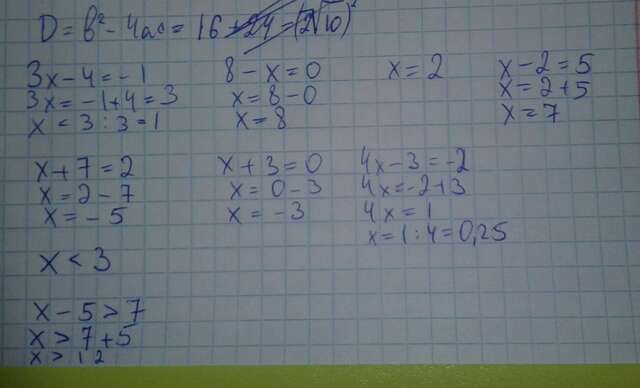 D = b² - 4ac = 16 + 24 = (2√10)²
3x - 4 = -1
3x = -1 + 4 = 3
x = 3 : 3 = 1
8 - x = 0
x = 8 - 0
x = 8
x = 2
x - 2 = 5
x = 2 + 5
x = 7
x + 7 = 2
x = 2 - 7
x = -5
x + 3 = 0
x = 0 - 3
x = -3
4x - 3 = -2
4x = -2 + 3
4x = 1
x = 1 : 4 = 0,25
x < 3
x - 5 > 7
x > 7 + 5
x > 12